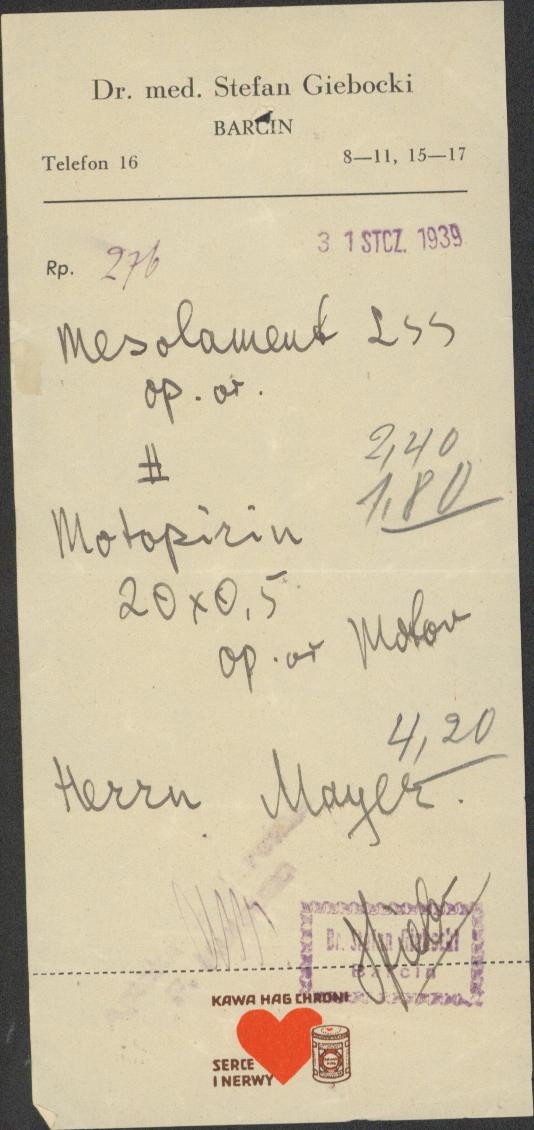 Dr. med. Stefan Giebocki
BARCIN
Telefon 16
8—11, 15—17
31 STCZ. 1939
Rp. 276
Mesolament
op. or.
#
2,40
1,80
Motopirin
20 x 0,5
op. or Motor
4,20
Herrn Mayer.
Dr. Stefan Giebocki
Barcin
KAWA HAG CHRONI
SERCE
I NERWY